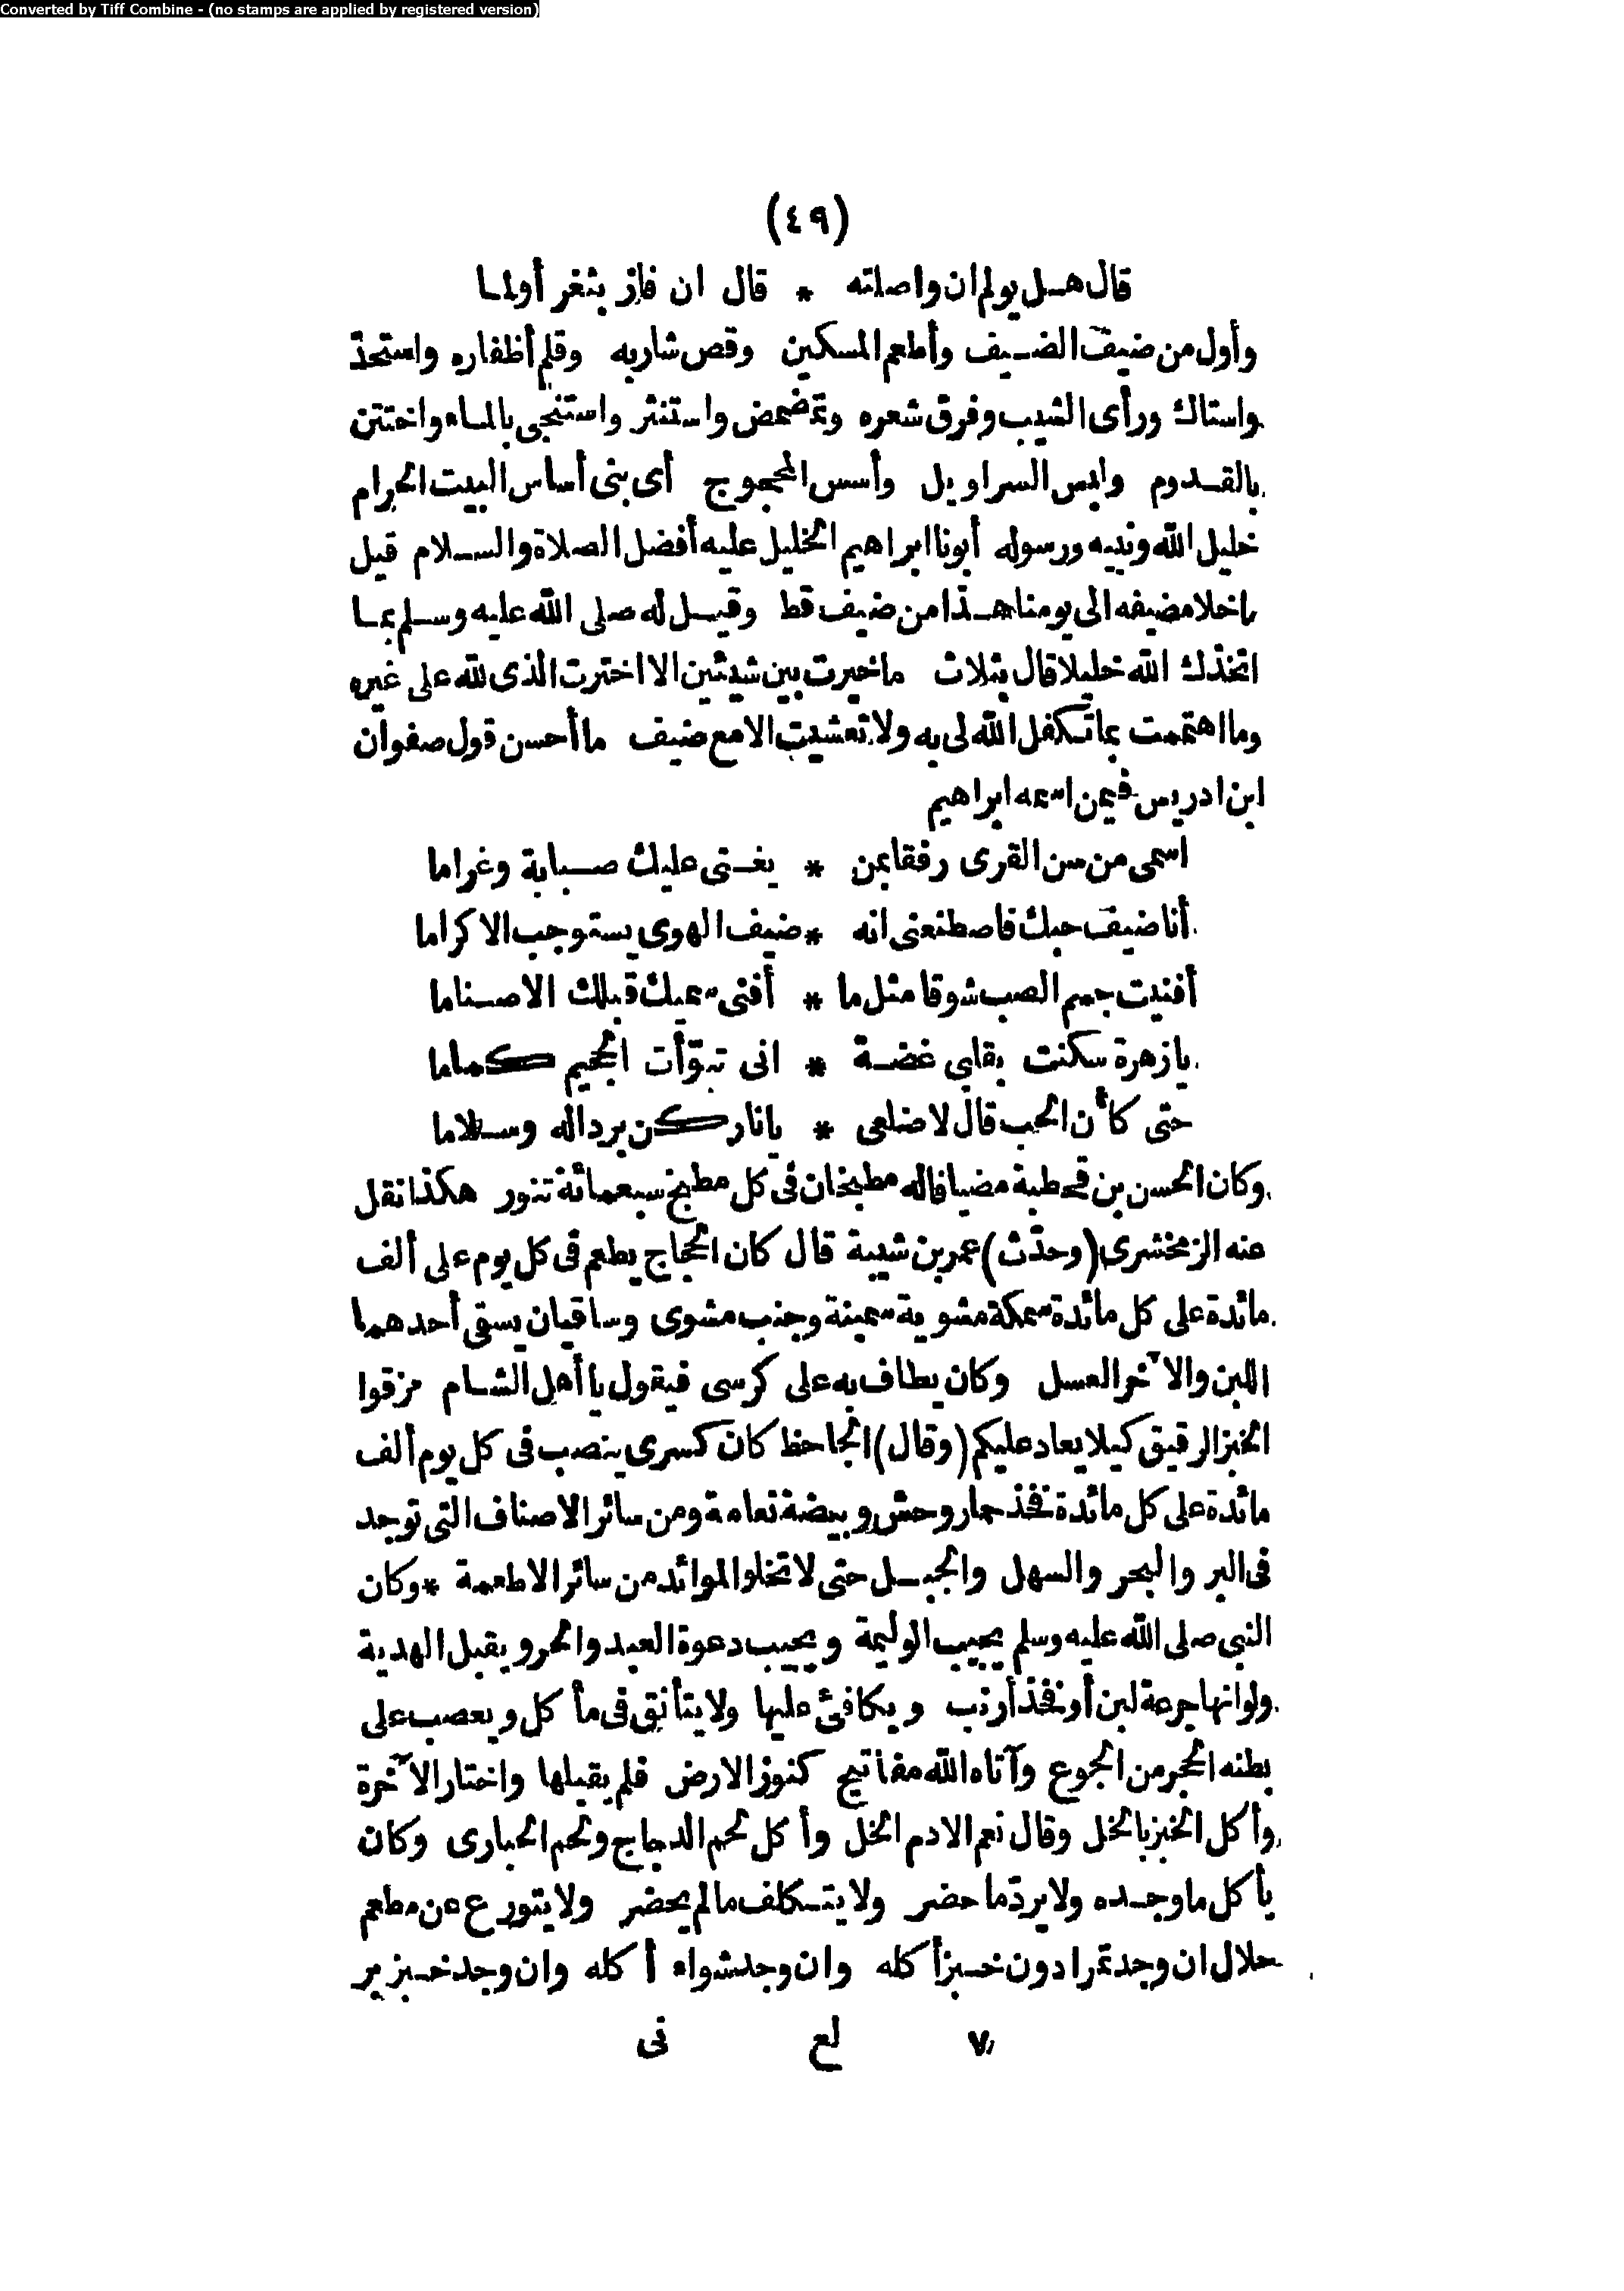 Converted by Tiff Combine - (no stamps are applied by registered version)
(٤٩)
قال هل يولم ان واصلته * قال ان فاز بثغر أولما
وأول من ضيف الضيف وأطعم المسكين وقص شاربه وقلم أظفاره واستحدّ
واستاك ورأى الشيب وفرق شعره وتمضمض واستنثر واستنجى بالماء واختتن
بالقدوم ولبس السراويل وأسس المحجوج أى بنى أساس البيت الحرام
خليل الله ونبيه ورسوله أبونا ابراهيم الخليل عليه أفضل الصلاة والسلام قيل
ما خلا مضيفه الى يومنا هذا من ضيف قط وقيل له صلى الله عليه وسلم بما
اتخذك الله خليلا قال بثلاث ما خيرت بين شيئين الا اخترت الذى لله على غيره
وما اهتممت بما تكفل الله لى به ولا تعشيت الا مع ضيف ما أحسن قول صفوان
ابن ادريس فيمن اسمه ابراهيم
اسمى من سن القرى رفقا بمن * يفنى عليك صبابة وغراما
أنا ضيف حبك فاصطنعنى انه * ضيف الهوى يستوجب الاكراما
أفنيت جسم الصب شوقا مثل ما * أفنى سميك قبلك الاصناما
يا زهرة سكنت بقلبى غضة * انى تبوّأت الجحيم كماما
حتى كأن الحب قال لاضلعى * يا نار كن برداله وسلاما
وكان الحسن بن قحطبة مضيافا له مطبخان فى كل مطبخ سبعمائة تنور هكذا نقل
عنه الزمخشرى (وحدّث) عمر بن شيبة قال كان الحجاج يطعم فى كل يوم على ألف
مائدة على كل مائدة سمكة مشوية سمينة وجنب مشوى وساقيان يسقى أحدهما
اللبن والآخر العسل وكان يطاف به على كرسى فيقول يا أهل الشام مزقوا
الخبز الرقيق كيلا يعاد عليكم (وقال) الجاحظ كان كسرى ينصب فى كل يوم ألف
مائدة على كل مائدة فخذ حمار وحش وبيضة نعامة ومن سائر الاصناف التى توجد
فى البر والبحر والسهل والجبل حتى لا تخلو الموائد من سائر الاطعمة * وكان
النبى صلى الله عليه وسلم يجيب الوليمة ويجيب دعوة العبد والحر ويقبل الهدية
ولو انها جرعة لبن أو فخذ أرنب ويكافئ عليها ولا يتأنق فى مأكل ويعصب على
بطنه الحجر من الجوع وآتاه الله مفاتيح كنوز الارض فلم يقبلها واختار الآخرة
وأكل الخبز بالخل وقال نعم الادم الخل وأكل لحم الدجاج ولحم الحبارى وكان
يأكل ما وجده ولا يردّ ما حضر ولا يتكلف ما لم يحضر ولا يتورع عن مطعم
حلال ان وجد تمرا دون خبز أكله وان وجد شواء أكله وان وجد خبز بر
٧ لع نى